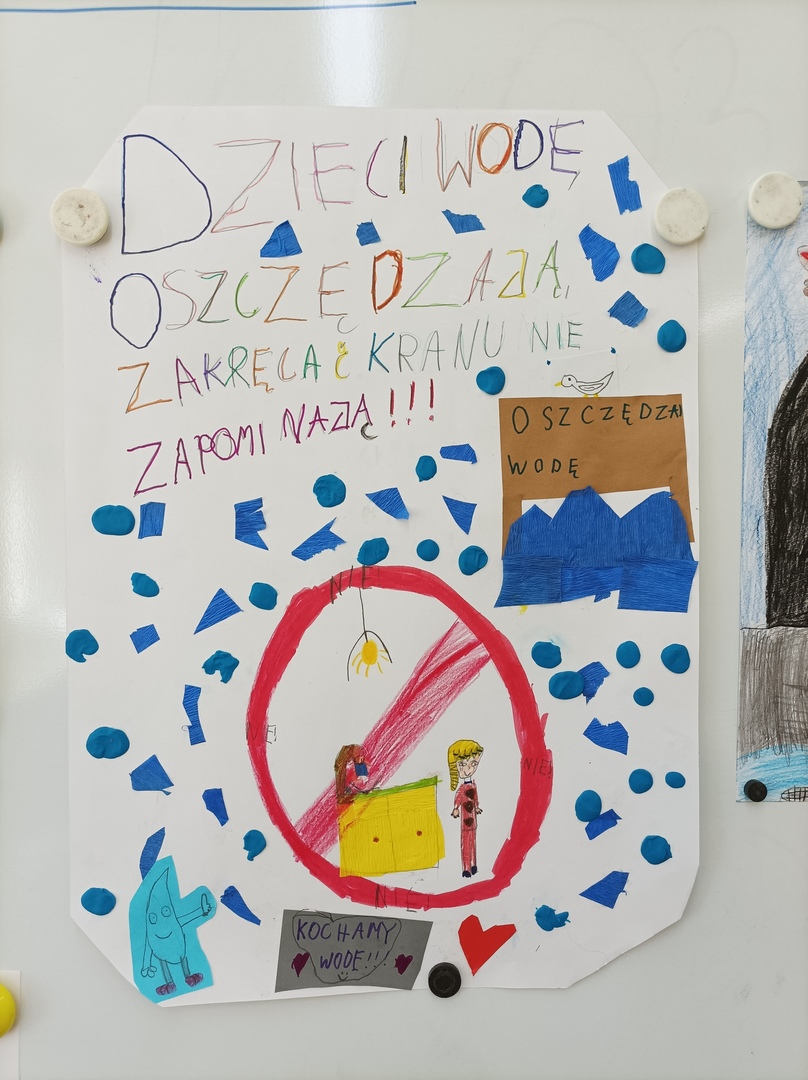 DZIECI WODĘ
OSZCZĘDZAJĄ,
ZAKRĘCAĆ KRANU NIE
ZAPOMINAJĄ!!!
OSZCZĘDZAJ
WODĘ
NIE!
NIE!
NIE!
NIE!
KOCHAMY
WODĘ!!!